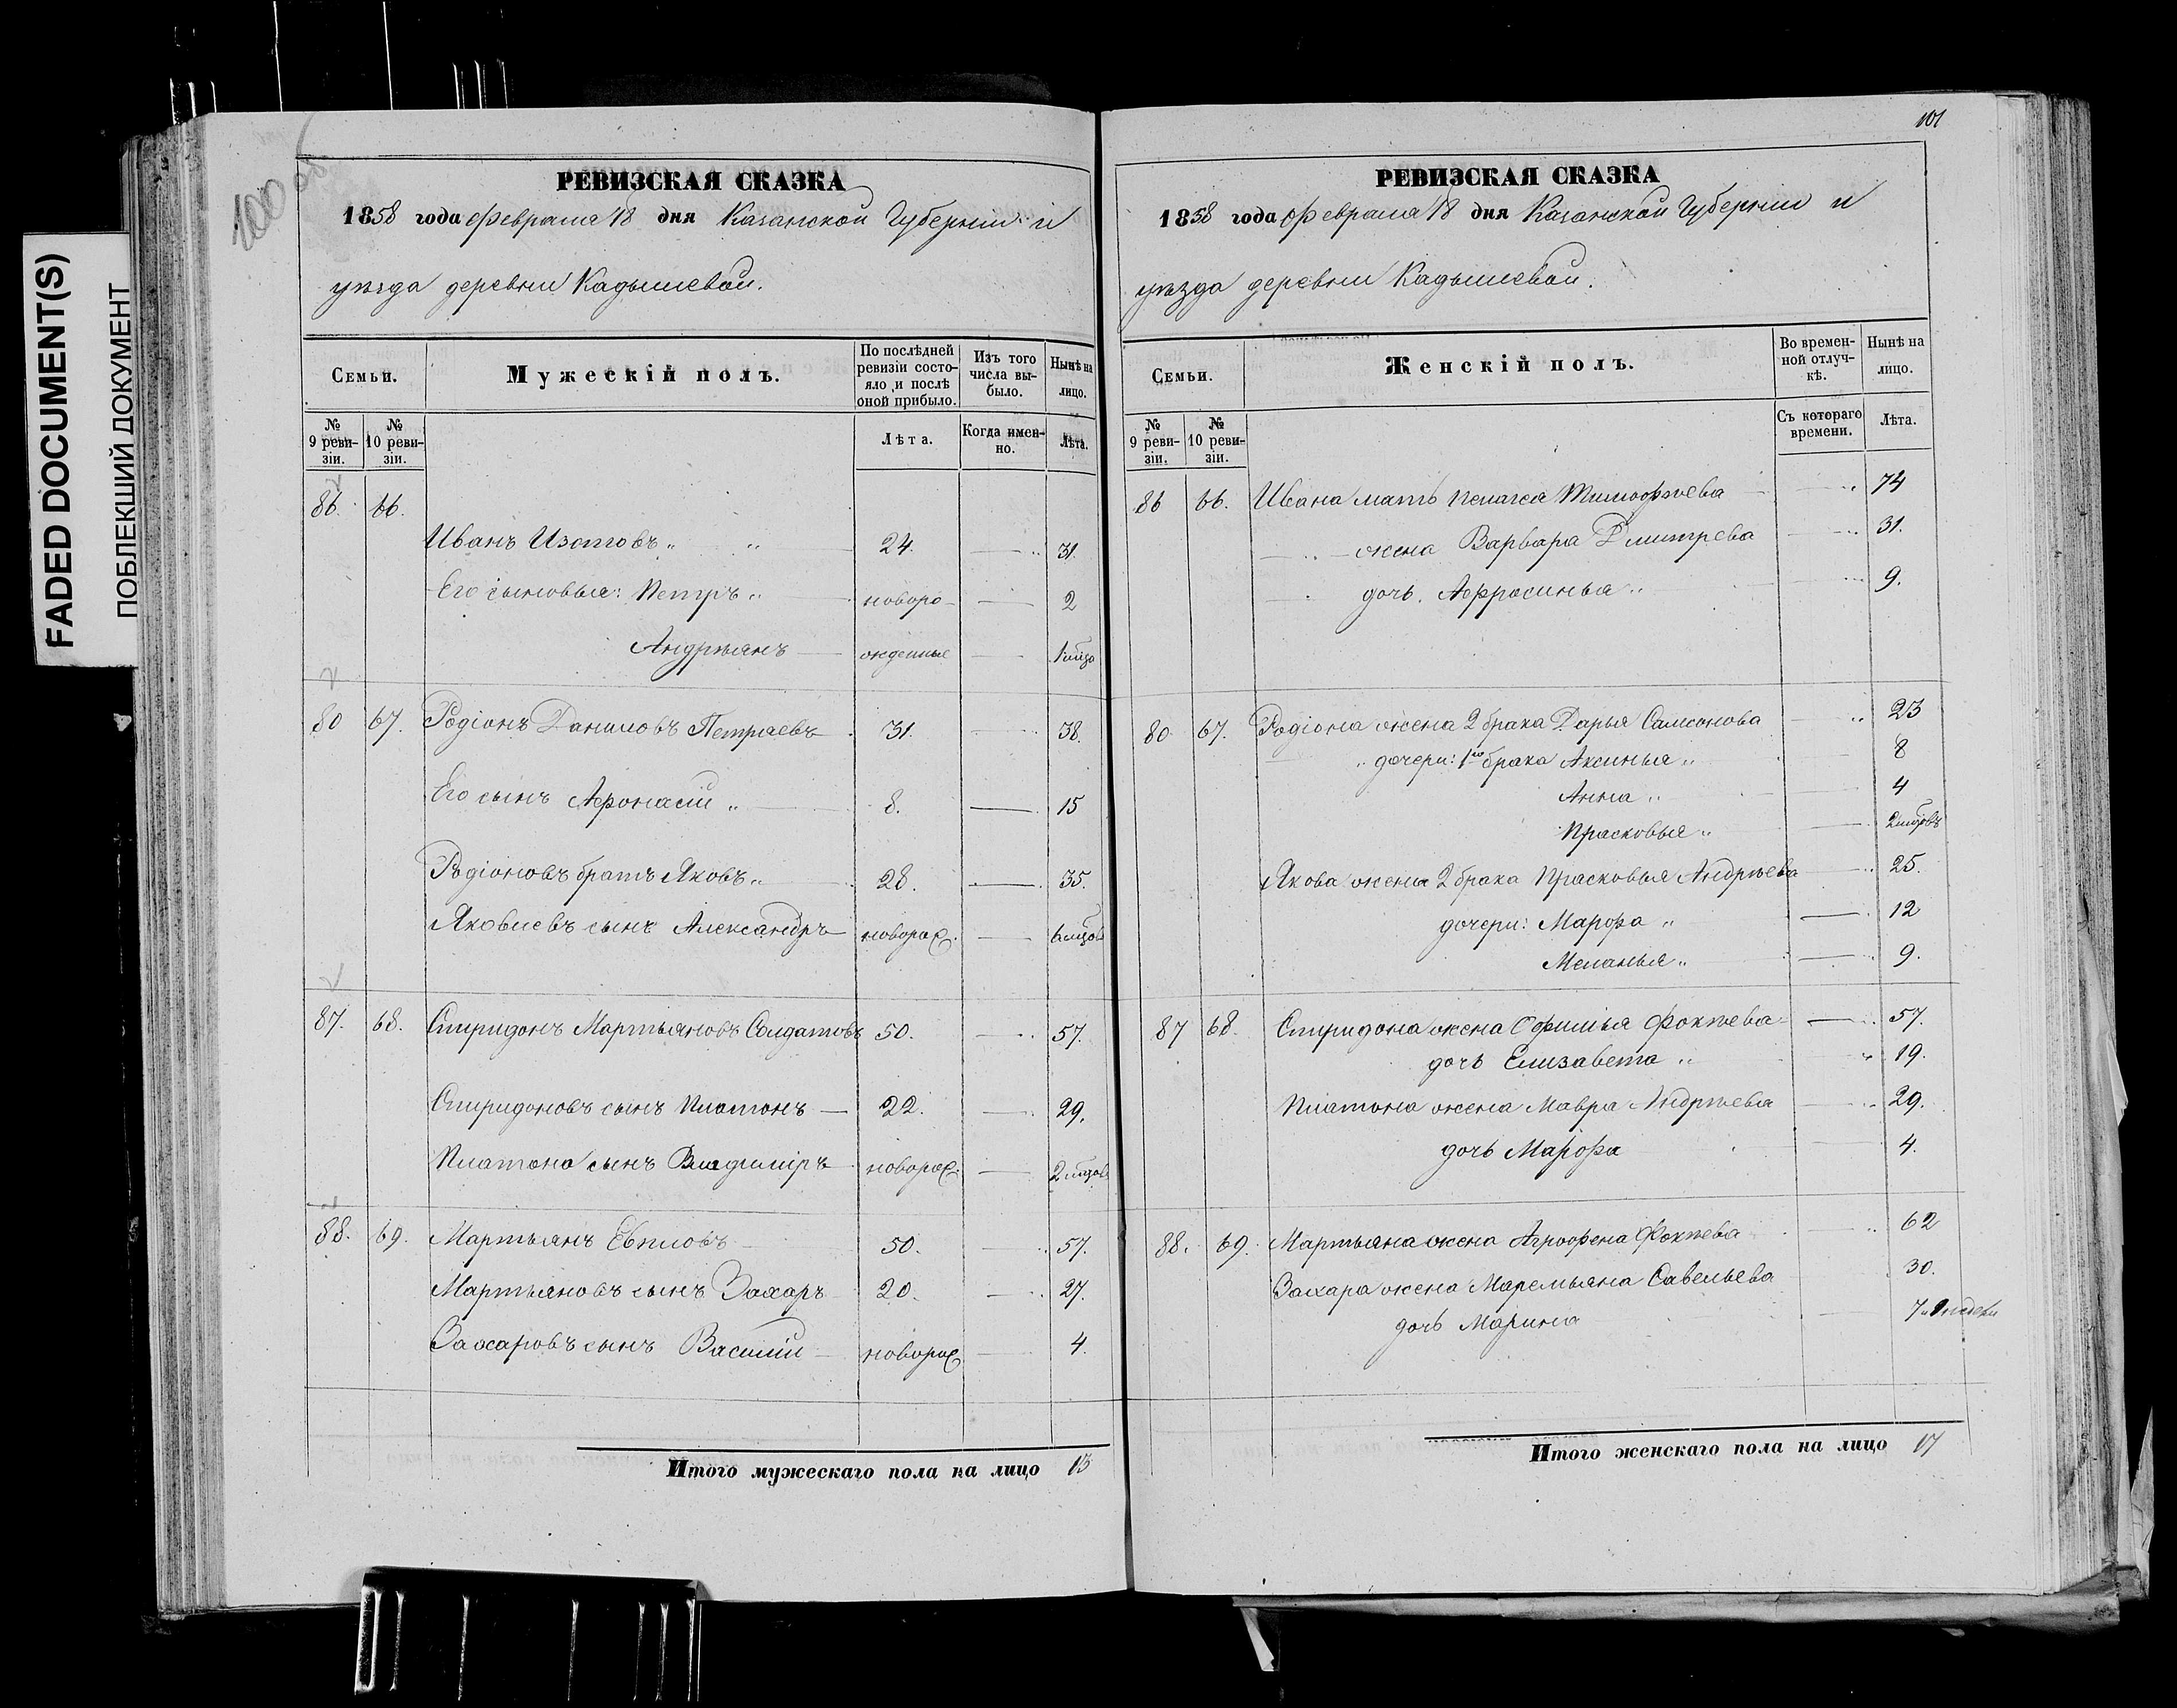 FADED DOCUMENT(S)
ПОБЛЕКШИЙ ДОКУМЕНТ
100 об
РЕВИЗСКАЯ СКАЗКА
1858 года Февраля 18 дня Казанской Губернии и
уѣзда деревни Кадышевой.
Семьи. Мужескій полъ. По послѣдней ревизіи состояло и послѣ оной прибыло. Изъ того числа выбыло. Нынѣ на лицо.
№ 9 ревизіи. № 10 ревизіи. Лѣта. Когда именно. Лѣта.
86. 66.
Иванъ Изотовъ 24. 31.
Его сыновья: Петръ новоро- 2
Андреянъ жденные
80 67. Родіонъ Даниловъ Петраевъ 31. 38.
Его сынъ Афонасій 8. 15
Родіоновъ братъ Яковъ 28. 35.
Яковлевъ сынъ Александръ новорож. 6 мцов
87. 68. Спиридонъ Мартьяновъ Солдатовъ 50. 57.
Спиридоновъ сынъ Платонъ 22. 29.
Платона сынъ Владиміръ новорож. 2 мцов
88. 69. Мартьянъ Евпловъ 50. 57.
Мартьяновъ сынъ Захаръ 20. 27.
Захаровъ сынъ Василій новорож 4.
Итого мужескаго пола на лицо 13
101
РЕВИЗСКАЯ СКАЗКА
1858 года Февраля 18 дня Казанской Губерніи и
уѣзда деревни Кадышевой.
Семьи. Женскій полъ. Во временной отлучкѣ. Нынѣ на лицо.
№ 9 ревизіи. № 10 ревизіи. Съ котораго времени. Лѣта.
86 66. Ивана мать Пелагея Тимофѣева 74
жена Варвара Дмитрева 31.
дочь. Афросинья 9.
80 67. Родіона жена 2 брака Дарья Самсонова 23
дочери: 1го брака Аксинья 8
Анна 4
Прасковья 2 мцовъ
Якова жена 2 брака Прасковья Андрѣева 25.
дочери: Марфа 12
Меланья 9.
87 68. Спиридона жена Офимья Фокѣева 57.
дочь Елизавета 19.
Платона жена Мавра Андрѣева 29.
дочь Марфа 4.
88. 69. Мартьяна жена Агрофена Фокѣева 62
Захара жена Маремьяна Савельева 30.
дочь Марина
Итого женскаго пола на лицо 17